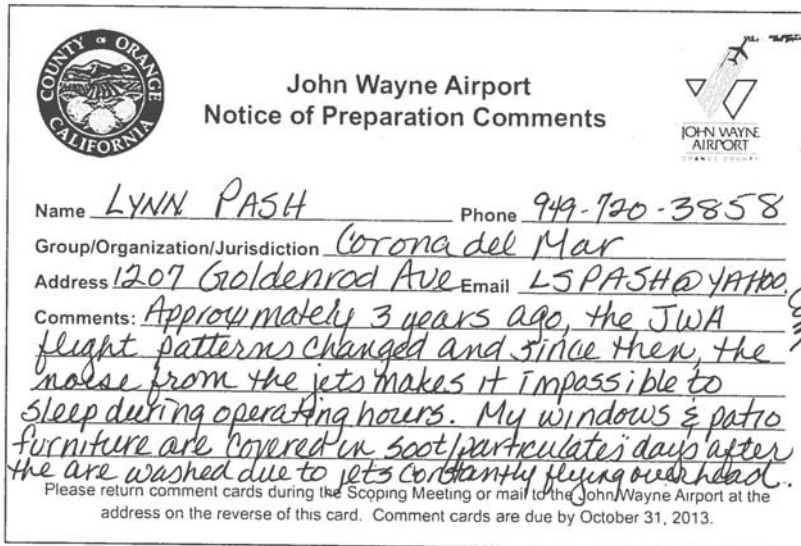 COUNTY OF ORANGE
CALIFORNIA
John Wayne Airport
Notice of Preparation Comments
JOHN WAYNE
AIRPORT
ORANGE COUNTY
Name LYNN PASH Phone 949-720-3858
Group/Organization/Jurisdiction Corona del Mar
Address 1207 Goldenrod Ave Email LSPASH@YAHOO.com
Comments: Approximately 3 years ago, the JWA
flight patterns changed and since then, the
noise from the jets makes it impossible to
sleep during operating hours. My windows & patio
furniture are covered in soot/particulates days after
the are washed due to jets constantly flying overhead.
Please return comment cards during the Scoping Meeting or mail to the John Wayne Airport at the
address on the reverse of this card. Comment cards are due by October 31, 2013.